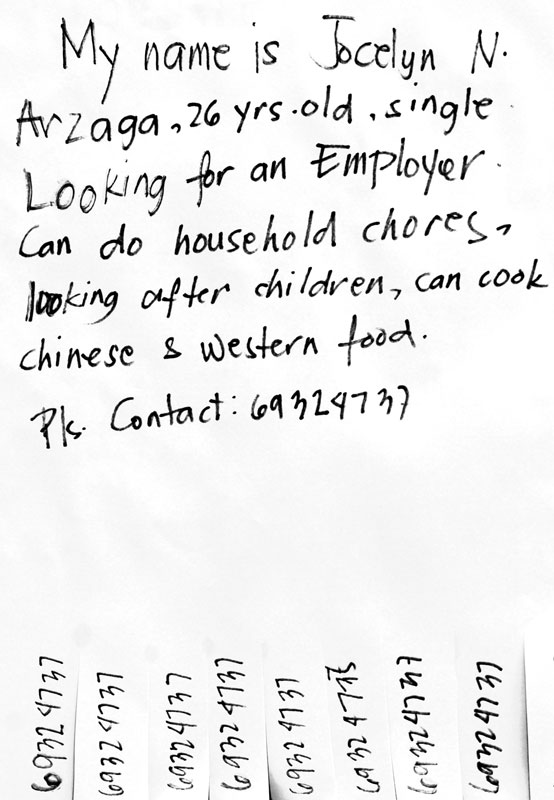 My name is Jocelyn N.
Arzaga, 26 yrs. old, single.
Looking for an Employer.
Can do household chores,
looking after children, can cook
chinese & western food.
Pls. Contact: 69324737
69324737
69324737
69324737
69324737
69324737
69324737
69324737